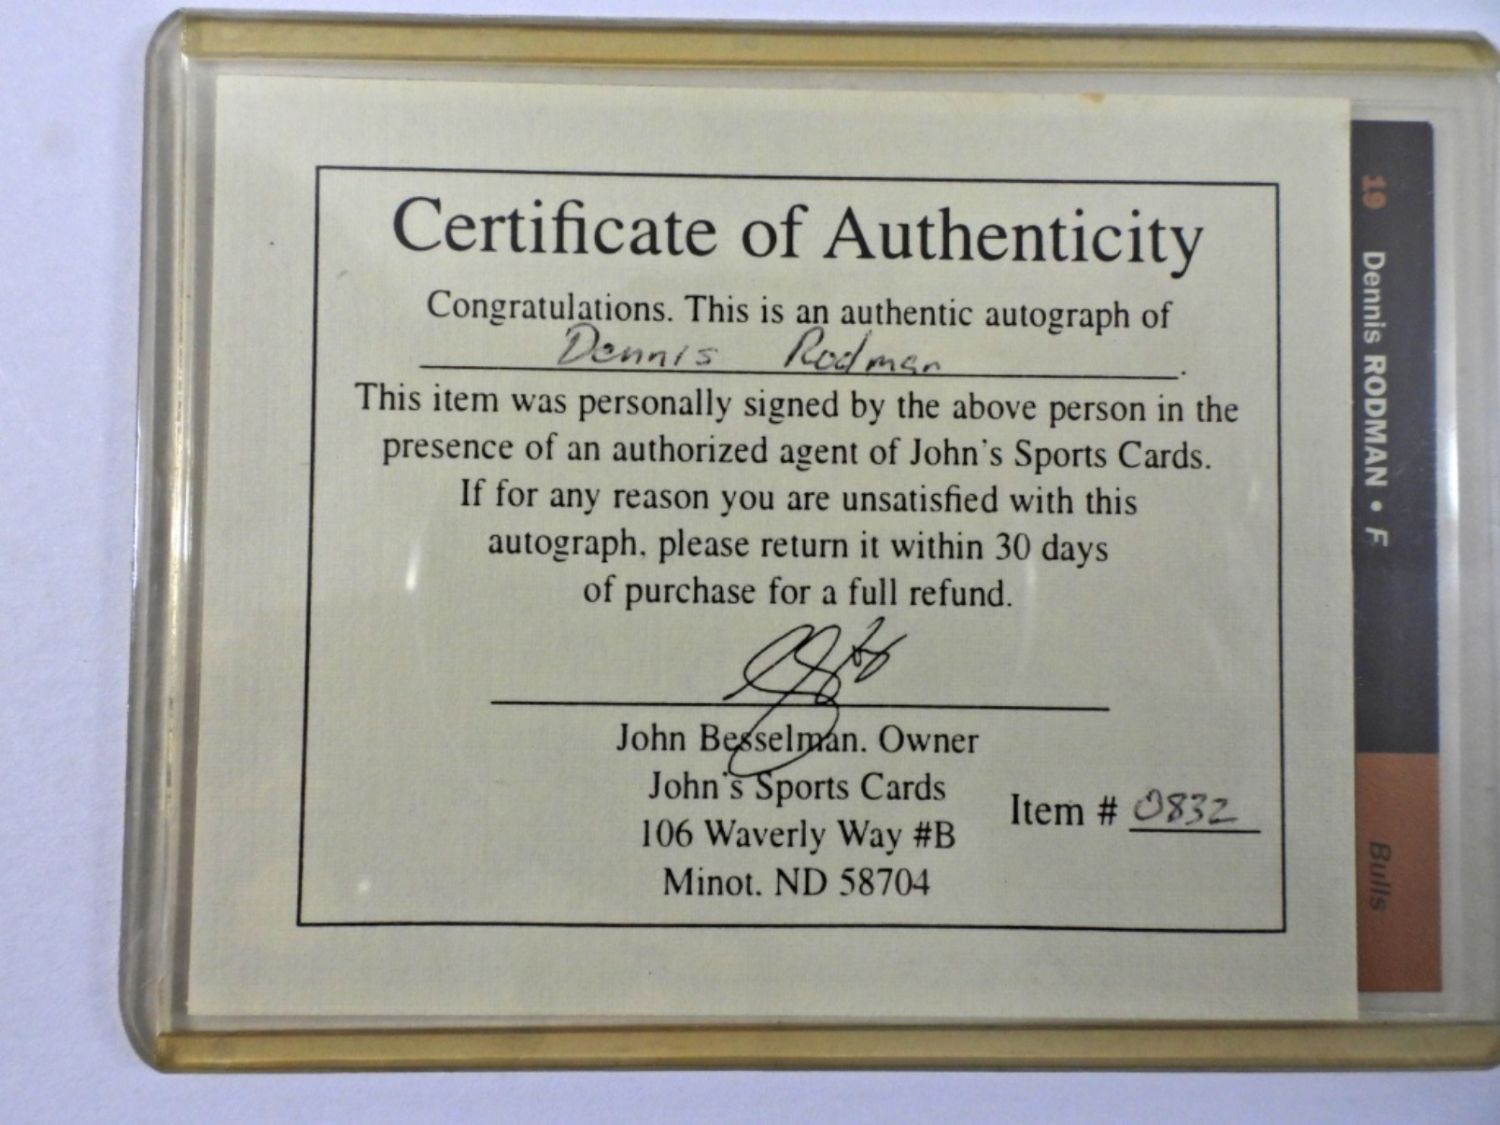 Certificate of Authenticity
Congratulations. This is an authentic autograph of
Dennis Rodman.
This item was personally signed by the above person in the
presence of an authorized agent of John's Sports Cards.
If for any reason you are unsatisfied with this
autograph, please return it within 30 days
of purchase for a full refund.
John Besselman, Owner
John's Sports Cards
106 Waverly Way #B
Minot, ND 58704
Item # 0832
19 Dennis RODMAN • F
Bulls